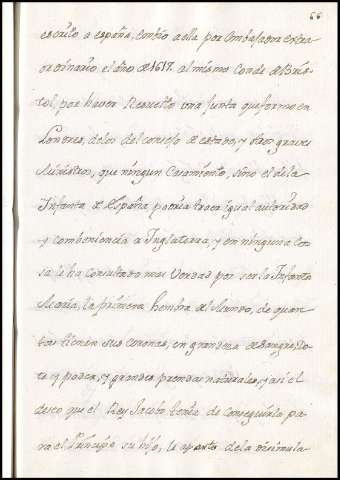 66
escrito a españa, embio a ella por Embaxador extra-
ordinario el año de 1617 al mismo Conde de Bris-
tol, por haver Resuelto una Junta que formo en
Londres, de los del consejo de estado, y otros graves
Ministros, que ningun Casamiento, sino el de la
Infanta de España podria traer igual autoridad
y combeniencia a Inglaterra, y en ninguna co-
sa le ha consultado mas Verdad por ser la Infanta
Maria, la primera hembra del Mundo, de quan-
tos tienen sus coronas, en grandeza de Sangre, Do-
te, y poder, y grandes prendas naturales, y asi el
deseo que el Rey Jacobo tenia de conseguirla pa-
ra el Principe su hijo, le aparto de la disimula-